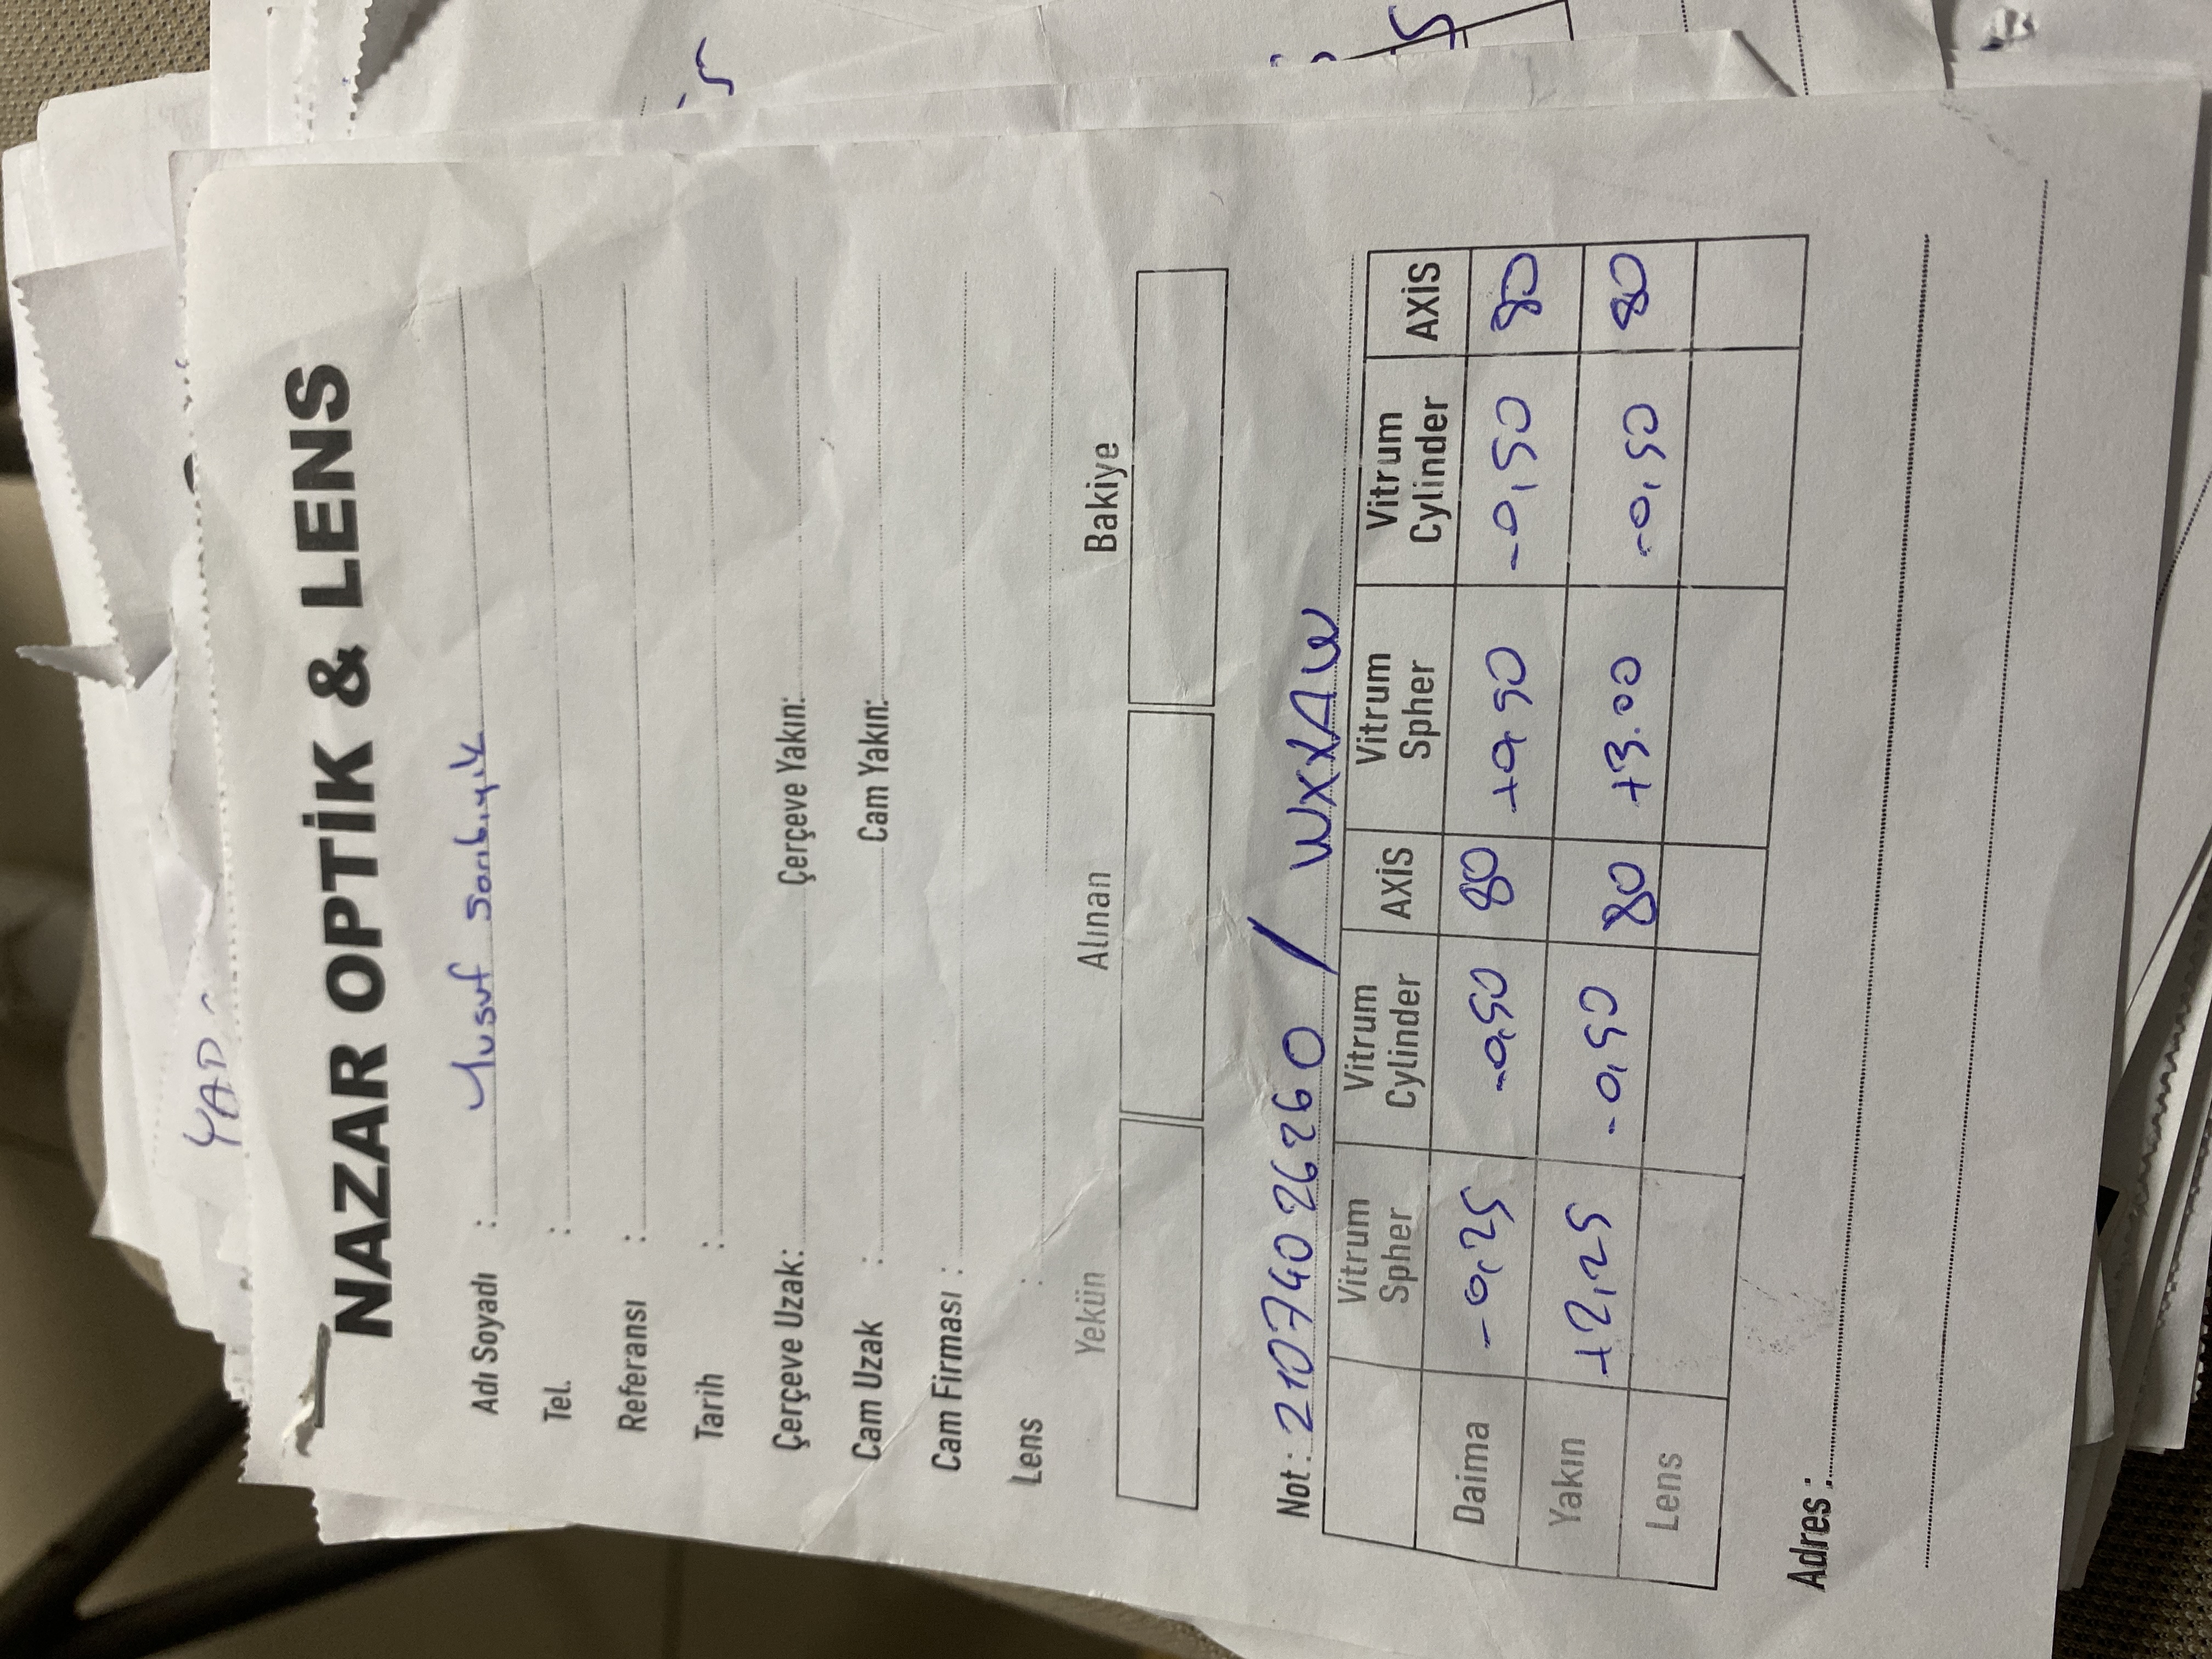 YAP
NAZAR OPTİK & LENS
Adı Soyadı : Yusuf Sarıbıyık
Tel. :
Referansı :
Tarih :
Çerçeve Uzak: Çerçeve Yakın:
Cam Uzak : Cam Yakın:
Cam Firması :
Lens :
Yekün Alınan Bakiye
Not : 21074026260 / WXXAW
Vitrum Spher Vitrum Cylinder AXİS Vitrum Spher Vitrum Cylinder AXİS
Daima -0,25 -0,50 80 +0,50 -0,50 80
Yakın +2,25 -0,50 80 +3.00 -0,50 80
Lens
Adres :